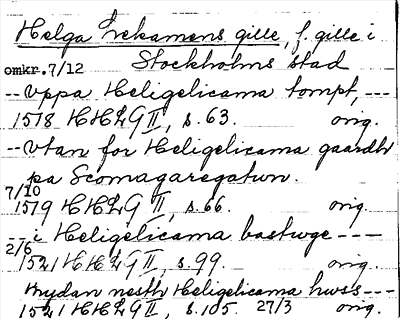 Helga Lekamens gille, f. gille i
omkr. 7/12 Stockholms stad
-- vppa Heligelicama tompt, ---
1518 HHLG II, s. 63. orig.
-- vtan for Heligelicama gaardh
pa Scomagaregatun.
7/10
1519 HHLG II, s. 66. orig.
-- i Heligelicama bastwge ---
2/6
1521 HHLG II, s. 99. orig.
mydan nesth Heligelicama hwss---
1521 HHLG II, s. 105. 27/3 orig.